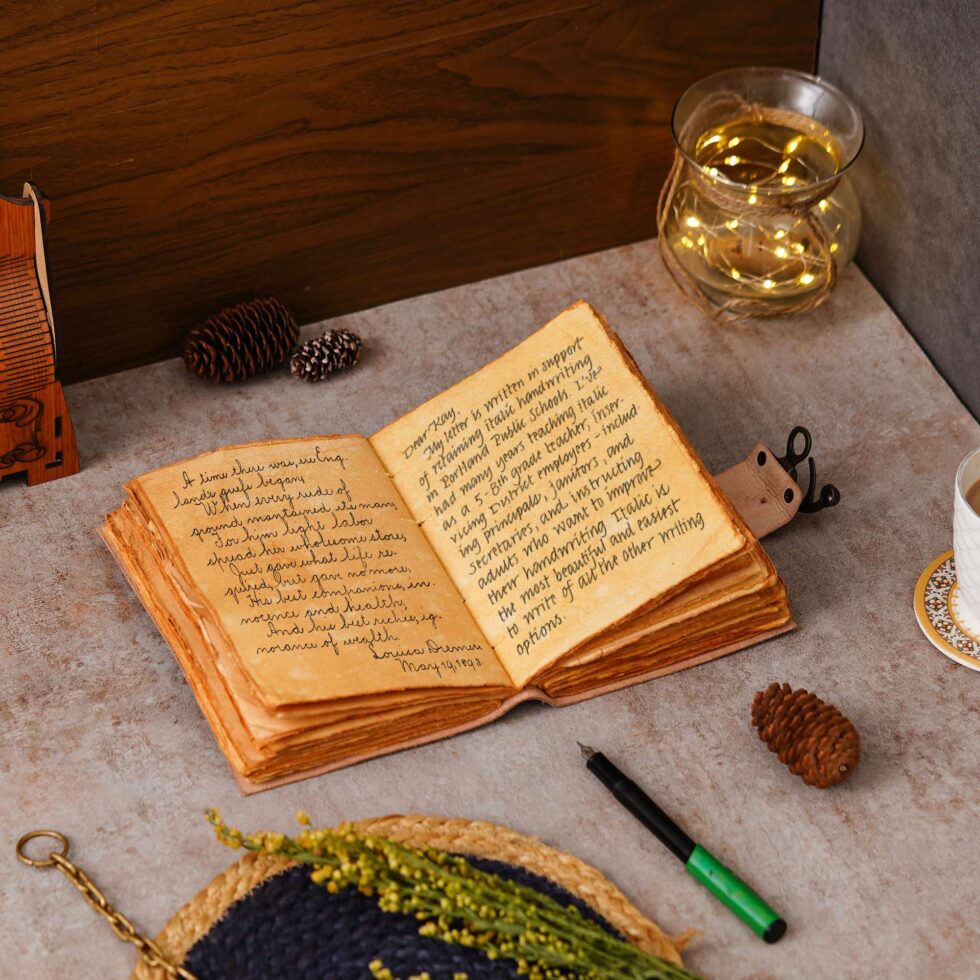 A time there was, ere Eng-
lands griefs began,
When every rude of
ground maintained its man
For him light labor
spread his wholesome store,
Just gave what life re-
quired, but gave no more.
His best companions, in-
nocence and health,
And his best riches, ig-
norance of wealth.
Louisa
May 19, 1893.
Dear Kay,
My letter is written in support
of retaining italic handwriting
in Portland Public Schools. I've
had many years teaching italic
as a 5-8th grade teacher, inser-
vicing District employees - includ-
ing principals, janitors, and
secretaries, and instructing
adults who want to improve
their handwriting. Italic is
the most beautiful and easiest
to write of all the other writing
options.